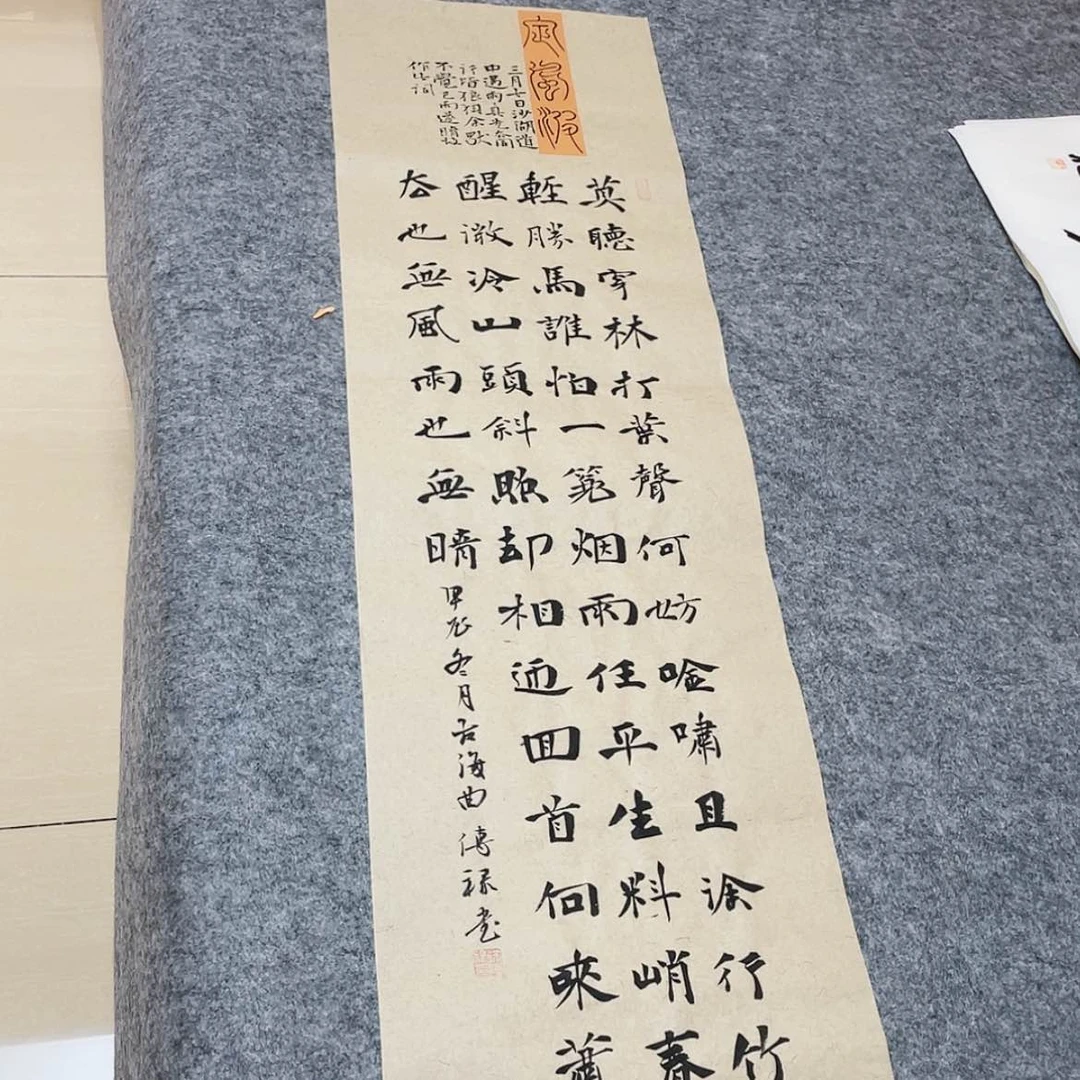 定風波
三月七日沙湖道
中遇雨具先去同
行皆狼狽余獨
不覺已而遂晴故
作此詞
莫聽穿林打葉聲何妨唫嘯且涂行竹
輕勝馬誰怕一蓑烟雨任平生料峭春
醒微冷山頭斜照却相迎回首向來蕭
去也無風雨也無晴
甲辰冬月古海曲傳祿書